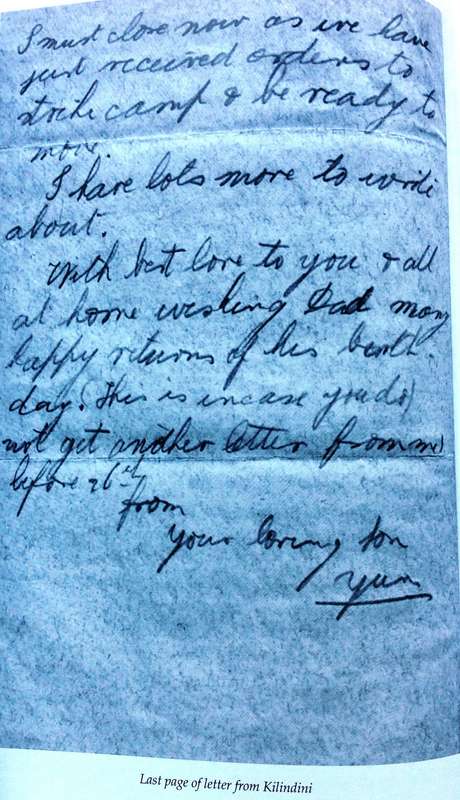 I must close now as we have
just received orders to
strike camp & be ready to
move.
I have lots more to write
about.
With best love to you & all
at home wishing Dad many
happy returns of his birth-
day. (This is incase you do)
not get another letter from me)
before 26th
from
your loving son
Last page of letter from Kilindini